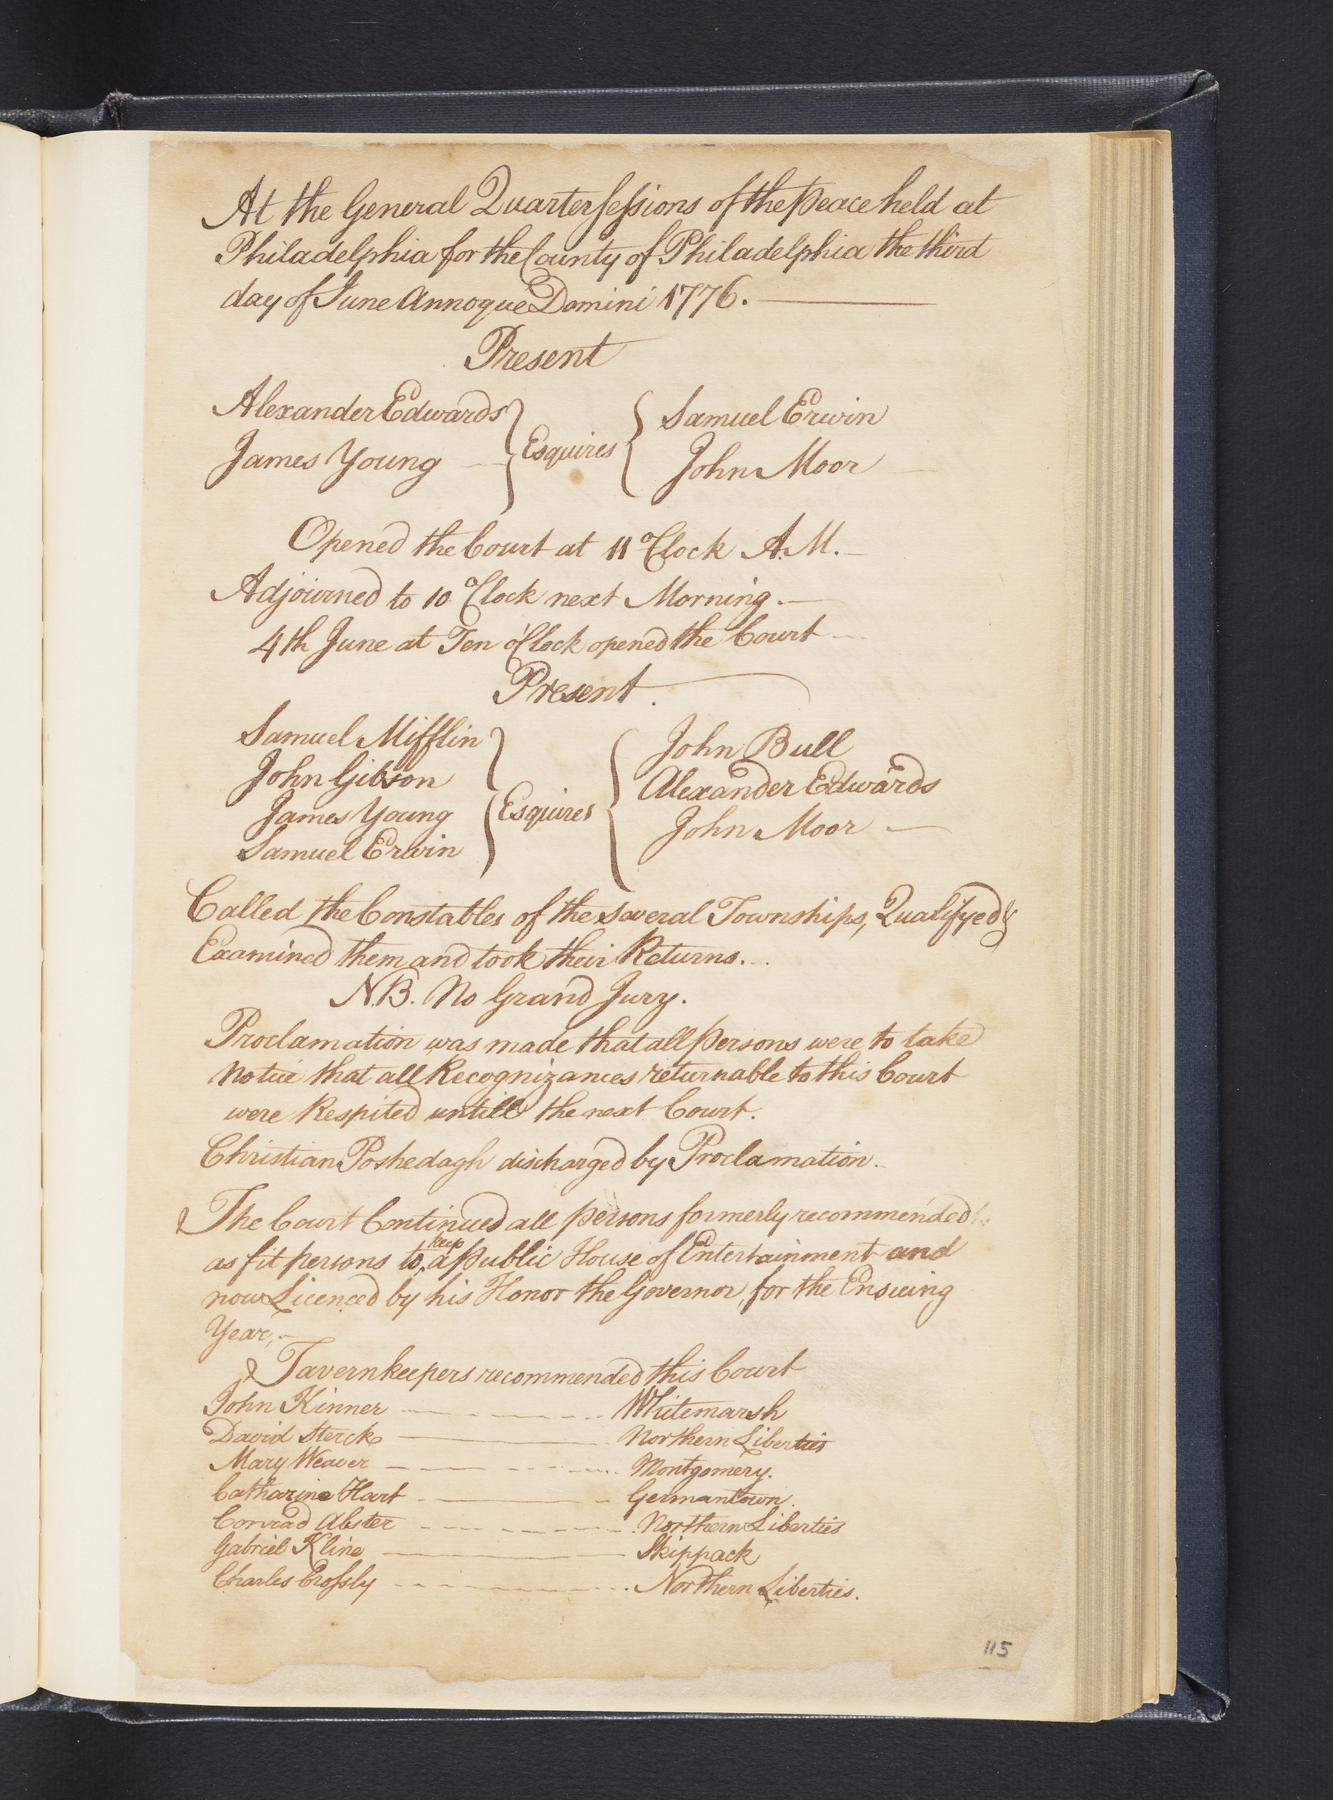 At the General Quarter Sessions of the peace held at
Philadelphia for the County of Philadelphia the third
day of June Annoque Domini 1776.
Present
Alexander Edwards
James Young
Esquires
Samuel Erwin
John Moor
Opened the Court at 11 oClock A.M.
Adjourned to 10 oClock next Morning.
4th June at Ten o'Clock opened the Court
Present
Samuel Mifflin
John Gibson
James Young
Samuel Erwin
Esquires
John Bull
Alexander Edwards
John Moor
Called the Constables of the several Townships, Qualifyed &
Examined them and took their Returns.
N.B. No Grand Jury.
Proclamation was made that all persons were to take
Notice that all Recognizances returnable to this Court
were Respited untill the next Court.
Christian Poshedagh discharged by Proclamation.
The Court Continued all persons formerly recommended
as fit persons to keep a public House of Entertainment and
now Licenced by his Honor the Governor, for the Ensuing
Year,
Tavernkeepers recommended this Court
John Kinner Whitemarsh
David Sterck Northern Liberties
Mary Weaver Montgomery.
Catharine Hart Germantown.
Conrad Alster Northern Liberties
Gabriel Kline Skippack
Charles Crossly Northern Liberties.
115